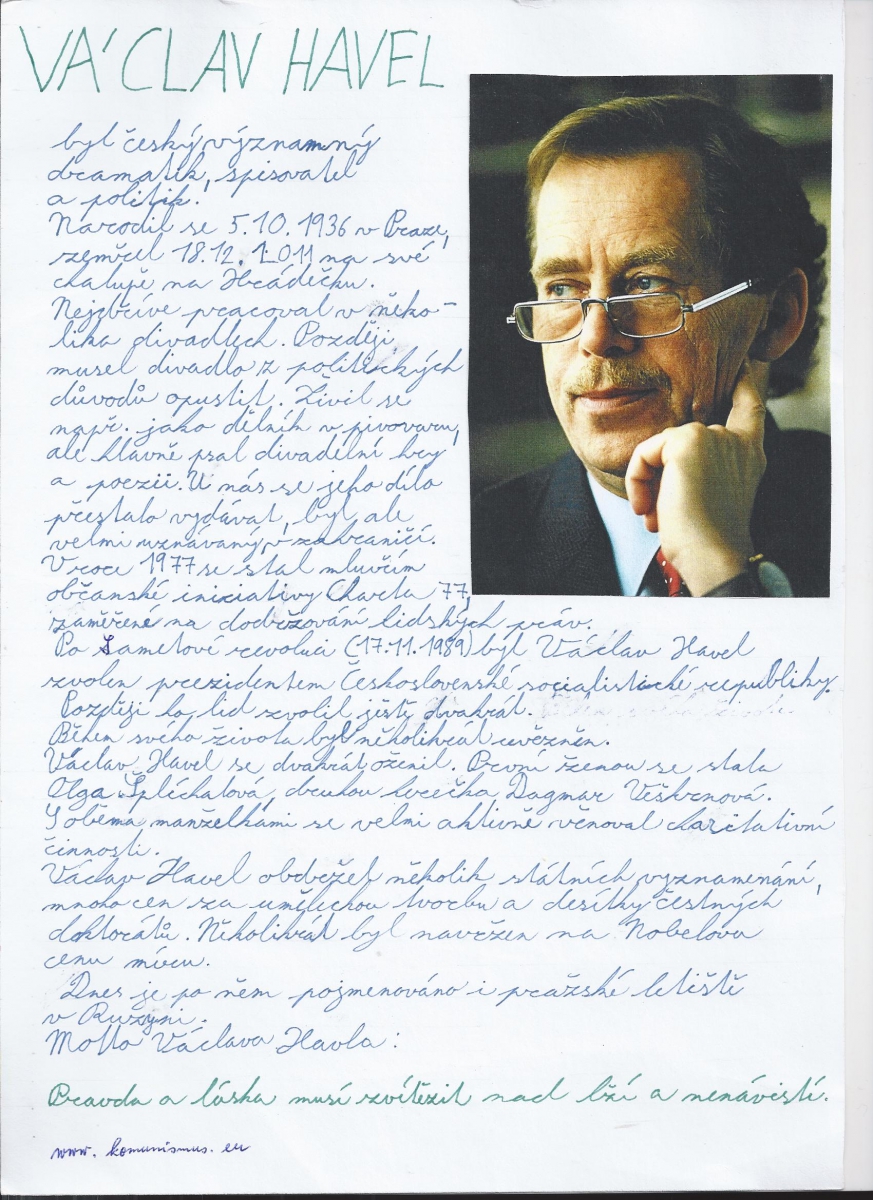 VÁCLAV HAVEL
byl český významný
dramatik, spisovatel
a politik.
Narodil se 5.10. 1936 v Praze,
zemřel 18.12. 2011 na své
chalupě na Hrádečku.
Nejdříve pracoval v něko-
lika divadlech. Později
musel divadlo z politických
důvodů opustit. Živil se
např. jako dělník v pivovaru,
ale hlavně psal divadelní hry
a poezii. U nás se jeho dílo
přestalo vydávat, byl ale
velmi uznávaný v zahraničí.
V roce 1977 se stal mluvčím
občanské iniciativy Charta 77,
zaměřené na dodržování lidských práv.
Po Sametové revoluci (17.11.1989) byl Václav Havel
zvolen prezidentem Československé socialistické republiky.
Později ho lid zvolil ještě dvakrát.
Během svého života byl několikrát uvězněn.
Václav Havel se dvakrát oženil. První ženou se stala
Olga Šplíchalová, druhou herečka Dagmar Veškrnová.
S oběma manželkami se velmi aktivně věnoval charitativní
činnosti.
Václav Havel obdržel několik státních vyznamenání,
mnoho cen za uměleckou tvorbu a desítky čestných
doktorátů. Několikrát byl navržen na Nobelovu
cenu míru.
Dnes je po něm pojmenováno i pražské letiště
v Ruzyni.
Motto Václava Havla:
Pravda a láska musí zvítězit nad lží a nenávistí.
www.komunismus.eu